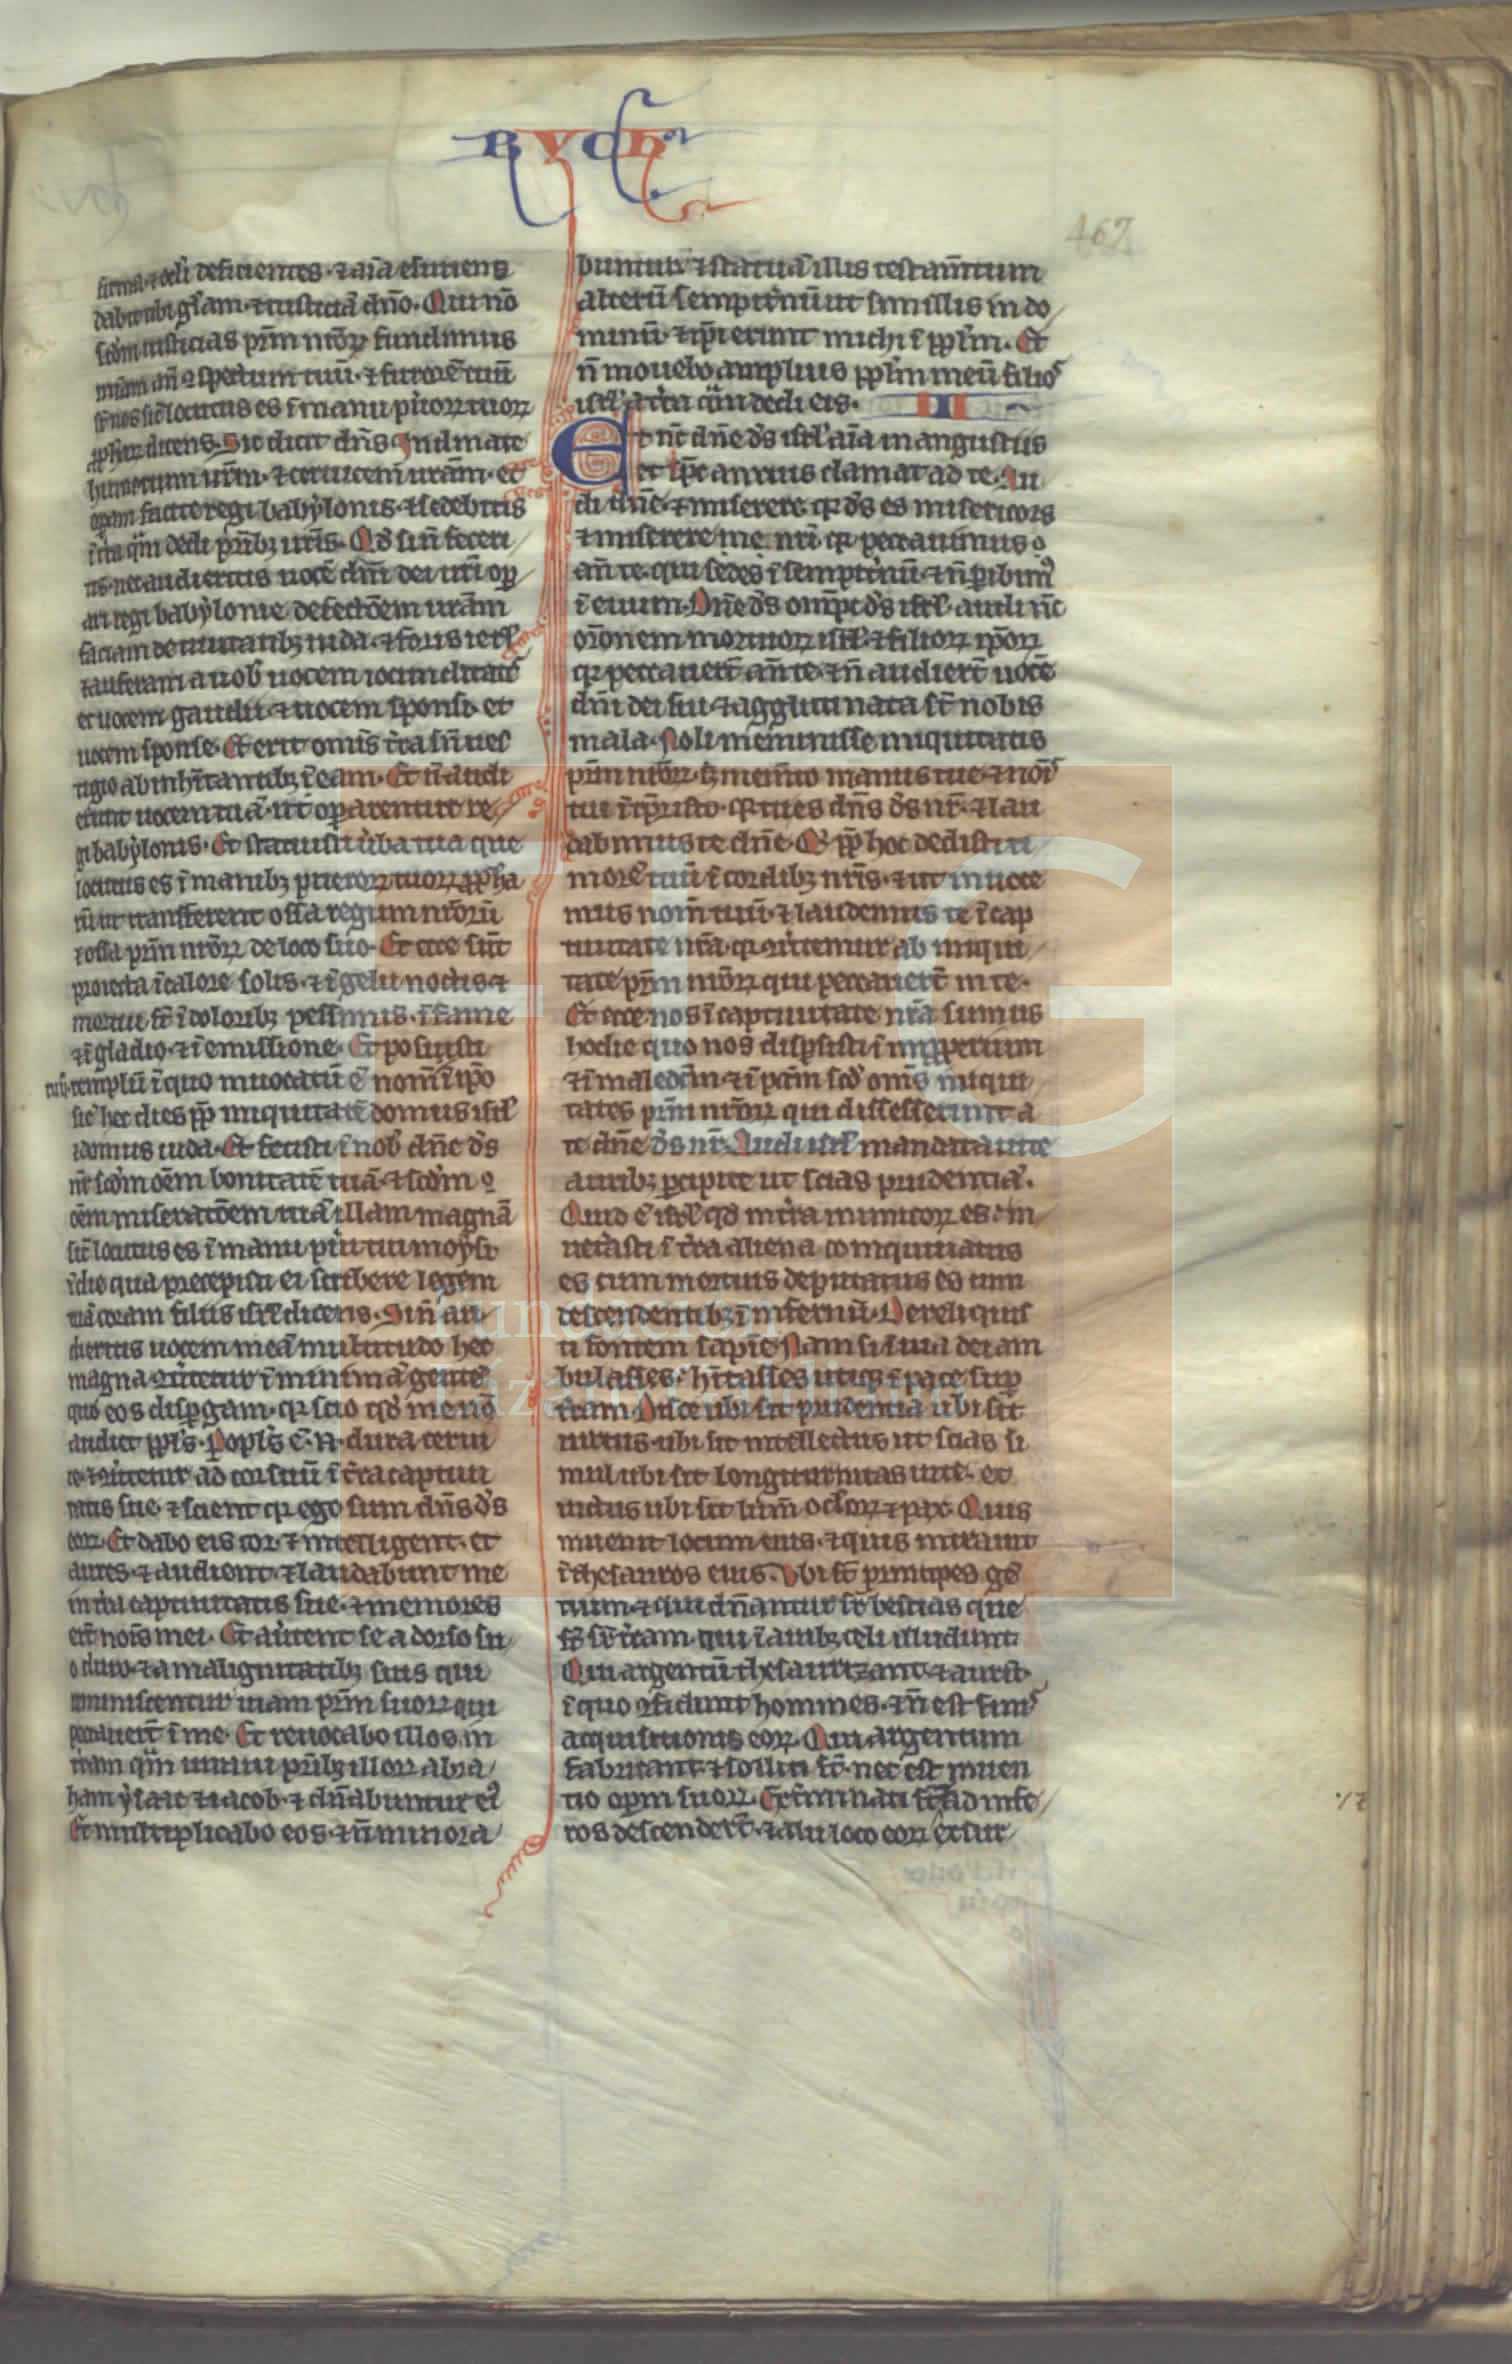 RVCH
467
firma ⁊ ocĺi deficientes · ⁊ aīa esuriens
dabit tibi gl̄am · ⁊ iusticiā dn̄o · Qui nō
scd̄m iusticias pr̄m nr̄oꝝ fundimus
mīam an̄ ꝯspectum tuū · ⁊ furorē tuū
sic locutus es ī manu pueroꝝ tuoꝝ
ꝓph̄aꝝ dicens · Sic dicit dn̄s Inclinate
humerum ur̄m · ⁊ ceruicem urām · et
opam facite regi babẏlonis · ⁊ sedebitis
ī tr̄a qm̄ dedi pr̄ibꝫ ur̄is · Qd̓ si n̄ feceri
tis nec audieritis uocē dn̄i dei ur̄i oꝑ
ari regi babẏlonie defectōem urām
faciam de ciuitatibꝫ iuda · ⁊ foris ierl̄
⁊ auferam a uob̓ uocem iocunditatis
et uocem gaudii · ⁊ uocem sponsi · et
uocem sponse · Et erit omīs tr̄a sn̄ ues
tigio ab inhītantibꝫ ī eam · Et n̄ audi
erunt uocem tuā · ut oꝑarentur re
gi babẏlonis · Et statuisti ūba tua que
locutus es ī manibꝫ pueroꝝ tuoꝝ ꝓph̄a
rū ut transferent̄ ossa regum nr̄orū
⁊ ossa pr̄m nr̄oꝝ de loco suo · Et ecce sūt
proiecta ī calore solis · ⁊ ī gelu noctis ⁊
mortui st̄ ī doloribꝫ pessimis · ī fame
⁊ ī gladio · ⁊ ī emissione · Et posuisti
tuū · templū ī quo inuocatū ē nom̄ ī ip̄o
sic̄ hec dies ꝓp̄ iniquitatē domus isrl̄
⁊ domus iuda · Et fecisti ī nob̓ dn̄e d̓s
nr̄ scd̄m oēm bonitatē tuā · ⁊ scd̄m
oēm miseratōem tuā illam magnā
sic̄ locutus es ī manu pu̓i tui moẏsi
ī die qua precepisti ei scribere legem
tuā coram filiis isrl̄ dicens · Si n̄ au
dieritis uocem meā multitudo hec
magna ꝯūtetur ī minimā gentē
quo eos disꝑgam · qr scio qd̓ me nō
audiet ppl̓s · Popl̓s ē · n̄ · dura cerui
ce · ⁊ ꝯūtetur ad cor suū ī tr̄a captiui
tatis sue · ⁊ scient qr ego sum dn̄s d̓s
eoꝝ · Et dabo eis cor · ⁊ intelligent · et
aures · ⁊ audient · ⁊ laudabunt me
in tr̄a captiuitatis sue · ⁊ memores
ert̄ noīs mei · Et aūtent se a dorso su
o duro · ⁊ a malignitatibꝫ suis qui
reminiscentur uiam pr̄m suoꝝ qui
peccauert̄ ī me · Et reuocabo illos in
tr̄am qm̄ iuraui pr̄ibꝫ illoꝝ abra
ham ẏsaac ⁊ iacob · ⁊ dn̄abuntur ei᷒
Et multiplicabo eos · ⁊ n̄ minora
buntur ⁊ statuā illis testam̄tum
alterū sempit̓nū ut sim illis in do
minū · ⁊ ip̄i erunt michi ī ppl̄m · Et
n̄ mouebo amplius ppl̄m meū filios
isrl̄ a tr̄a qm̄ dedi eis · III
Et nc̄ dn̄e d̓s isrl̄ aīa in angustiis
et sp̄c anxius clamat ad te · Au
di dn̄e · ⁊ miserere qr d̓s es misericors
⁊ miserere me nr̄i qr peccauimus
an̄ te · qui sedes ī sempit̓nū · ⁊ n̄ ꝑibim᷒
ī euum · Dn̄e d̓s omp̄c d̓s isrl̄ · audi nc̄
orōnem mortuoꝝ isrl̄ · ⁊ filioꝝ ip̄oꝝ
qr peccauert̄ an̄ te · ⁊ n̄ audiert̄ uocē
dn̄i dei sui · ⁊ agglutinata st̄ nobis
mala · Noli meminisse iniquitatis
pr̄m nr̄oꝝ · sꝫ mem̄to manus tue · ⁊ noīs
tui ī tp̄r isto · qr tu es dn̄s d̓s nr̄ · ⁊ lau
dabimus te dn̄e · Qr ꝓp̄ hoc dedisti ti
morē tuū ī cordibꝫ nr̄is · ⁊ ut inuoce
mus nom̄ tuū · ⁊ laudemus te ī cap
tiuitate nr̄a · qr ꝯūtemur ab iniqui
tate pr̄m nr̄oꝝ qui peccauert̄ in te ·
Et ecce nos ī captiuitate nr̄a sumus
hodie quo nos disꝑsisti ī inꝓperium
⁊ ī maledcm̄ · ⁊ ī pccm̄ scd̓ omīs iniqui
tates pr̄m nr̄oꝝ qui discesserunt a
te dn̄e d̓s nr̄ · Audi isrl̄ mandata uite
auribꝫ ꝑcipite ut scias prudentiā ·
Quid ē isrl̄ qd̓ in tr̄a inimicoꝝ es · in
uet̓asti ī tr̄a aliena · coinquinatus
es cum mortuis deputatus es cum
descendentibꝫ ī infernū · Dereliquis
ti fontem sapīe Nam si ī uia dei am
bulasses · hītasses utiqꝫ ī pace suꝑ
tr̄am · Disce ubi sit prudentia ubi sit
uirtus · ubi sit intellectus ut scias si
mul ubi sit longiturnitas uite · et
uictus ubi sit lum̄ oclōꝝ ⁊ pax · Quis
inuenit locum eius · ⁊ quis intrauit
ī thesauros eius · Ubi st̄ principes gē
tium · ⁊ qui dn̄antur sr̄ bestias que
st̄ sr̄ tr̄am · qui ī auibꝫ celi illudunt
Qui argentū thesaurizant · ⁊ aurū ·
ī quo ꝯfidunt homines · ⁊ n̄ est finis
acquisitionis eoꝝ · Qui argentum
fabricant · ⁊ solliciti st̄ · nec est inuen
tio oꝑm suoꝝ · Exterminati st̄ ⁊ ad infe
ros descendert̄ · ⁊ alii loco eoꝝ exsur
Fundación
Lázaro Galdiano